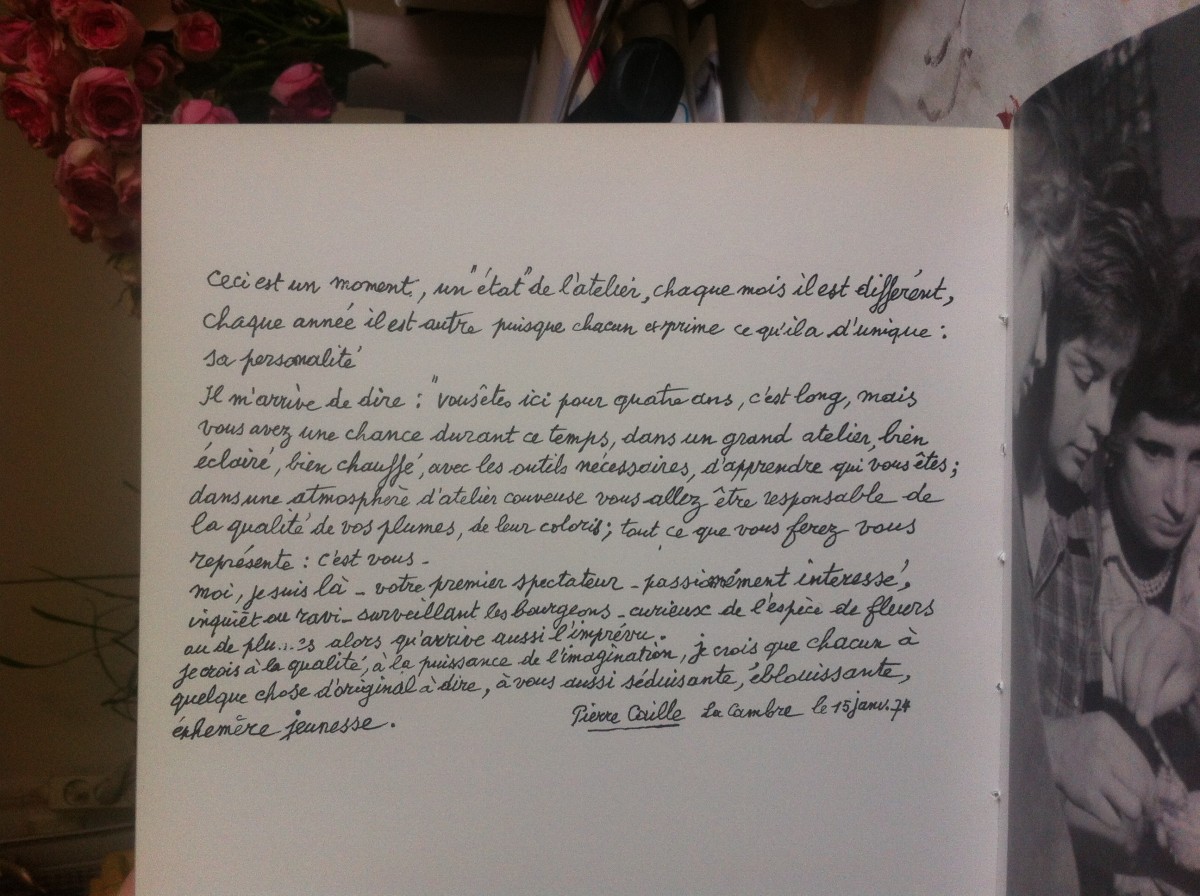 Ceci est un moment, un "état" de l'atelier, chaque mois il est différent,
chaque année il est autre puisque chacun exprime ce qu'il a d'unique :
sa personalité
Il m'arrive de dire : "vous êtes ici pour quatre ans, c'est long, mais
vous avez une chance durant ce temps, dans un grand atelier, bien
éclairé, bien chauffé, avec les outils nécessaires, d'apprendre qui vous êtes ;
dans une atmosphère d'atelier couveuse vous allez être responsable de
la qualité de vos plumes, de leur coloris ; tout ce que vous ferez vous
représente : c'est vous -
moi, je suis là - votre premier spectateur - passionément interessé,
inquièt ou ravi - surveillant les bourgeons - curieux de l'espèce de fleurs
ou de alors qu'arrive aussi l'imprévu.
je crois à la qualité, à la puissance de l'imagination, je crois que chacun à
quelque chose d'original à dire, à vous aussi séduisante, éblouissante,
éphemère jeunesse.
Pierre Caille La Cambre le 15 janv. 74